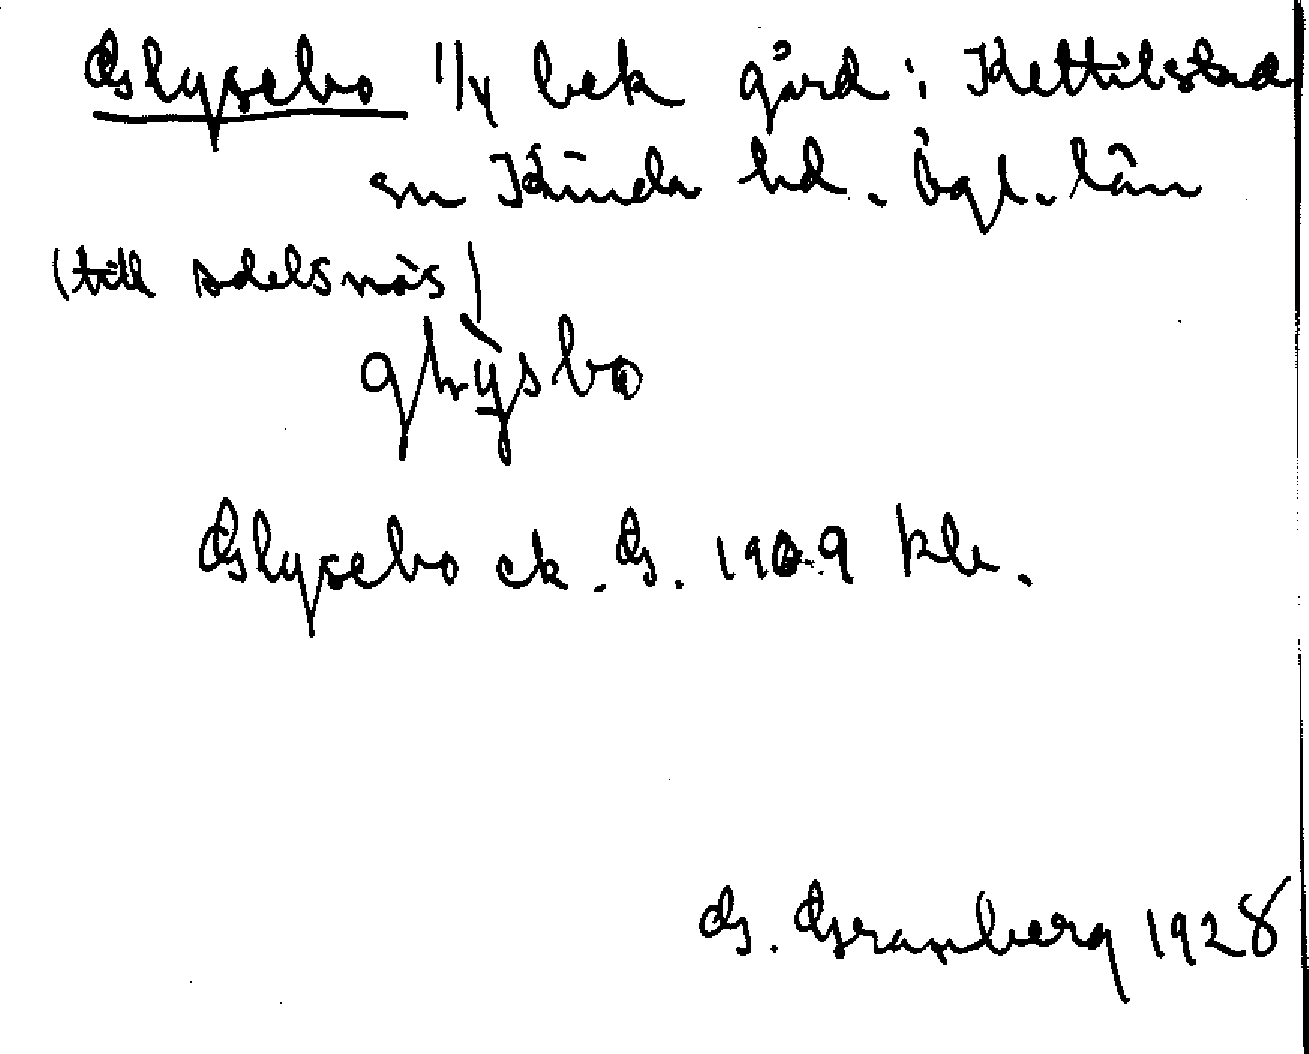 Glysebo 1/4 bek gård i Kettilstad
sn Kinda hd. Ögl. län
(till Adelsnäs)
glỳsbo
Glysebo ek. G. 1909 kb.
G. Granberg 1928